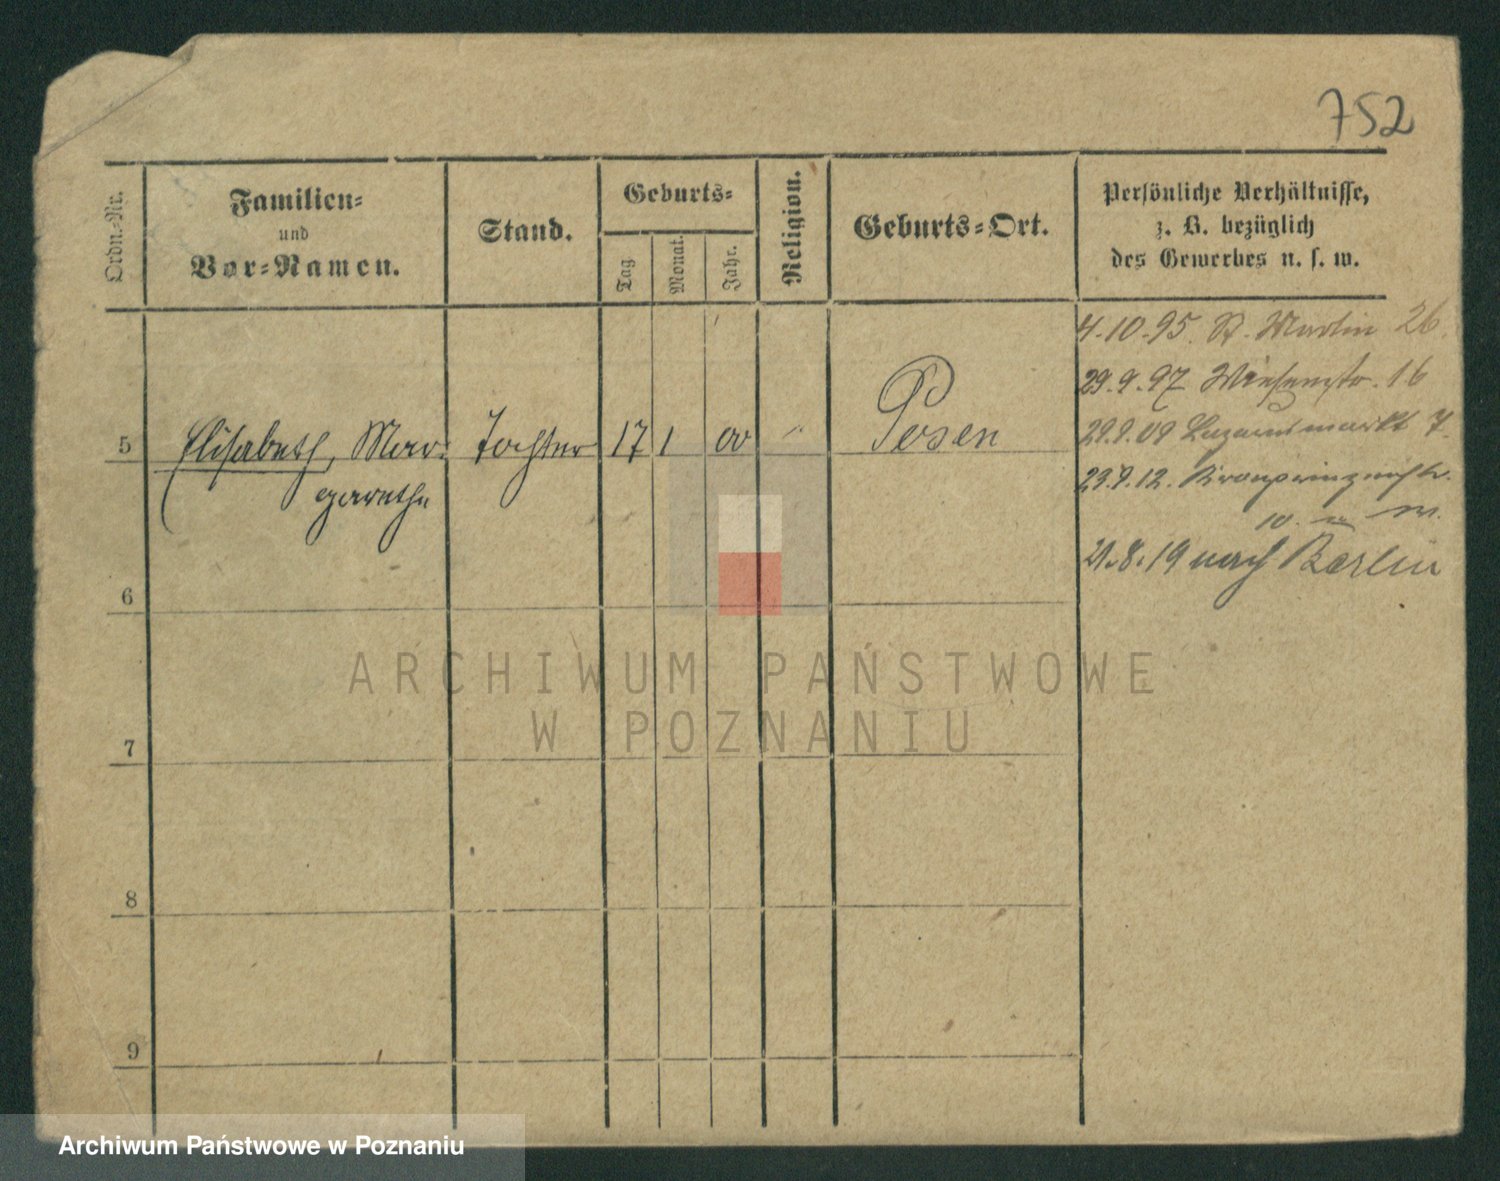 752
Ordn.-Nr.
Familien-
und
Vor-Namen.
Stand.
Geburts-
Tag
Monat.
Jahr.
Religion.
Geburts-Ort.
Persönliche Verhältnisse,
z. B. bezüglich
des Gewerbes u. s. w.
4.10.95. St. Martin 26.
29.9.97 Wiesenstr. 16
5 Elisabeth, Mar- Tochter 17 1 00 " Posen
garethe
29.9.09 Lazarusmarkt 7.
23.9.12. Kronprinzenstr.
10.
21.8.19 nach Berlin
6
7
8
9
ARCHIWUM PAŃSTWOWE
W POZNANIU
Archiwum Państwowe w Poznaniu